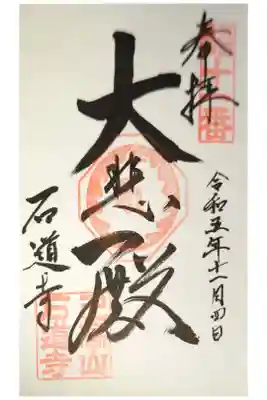 奉拝
令和五年十一月四日
大悲殿
石道寺